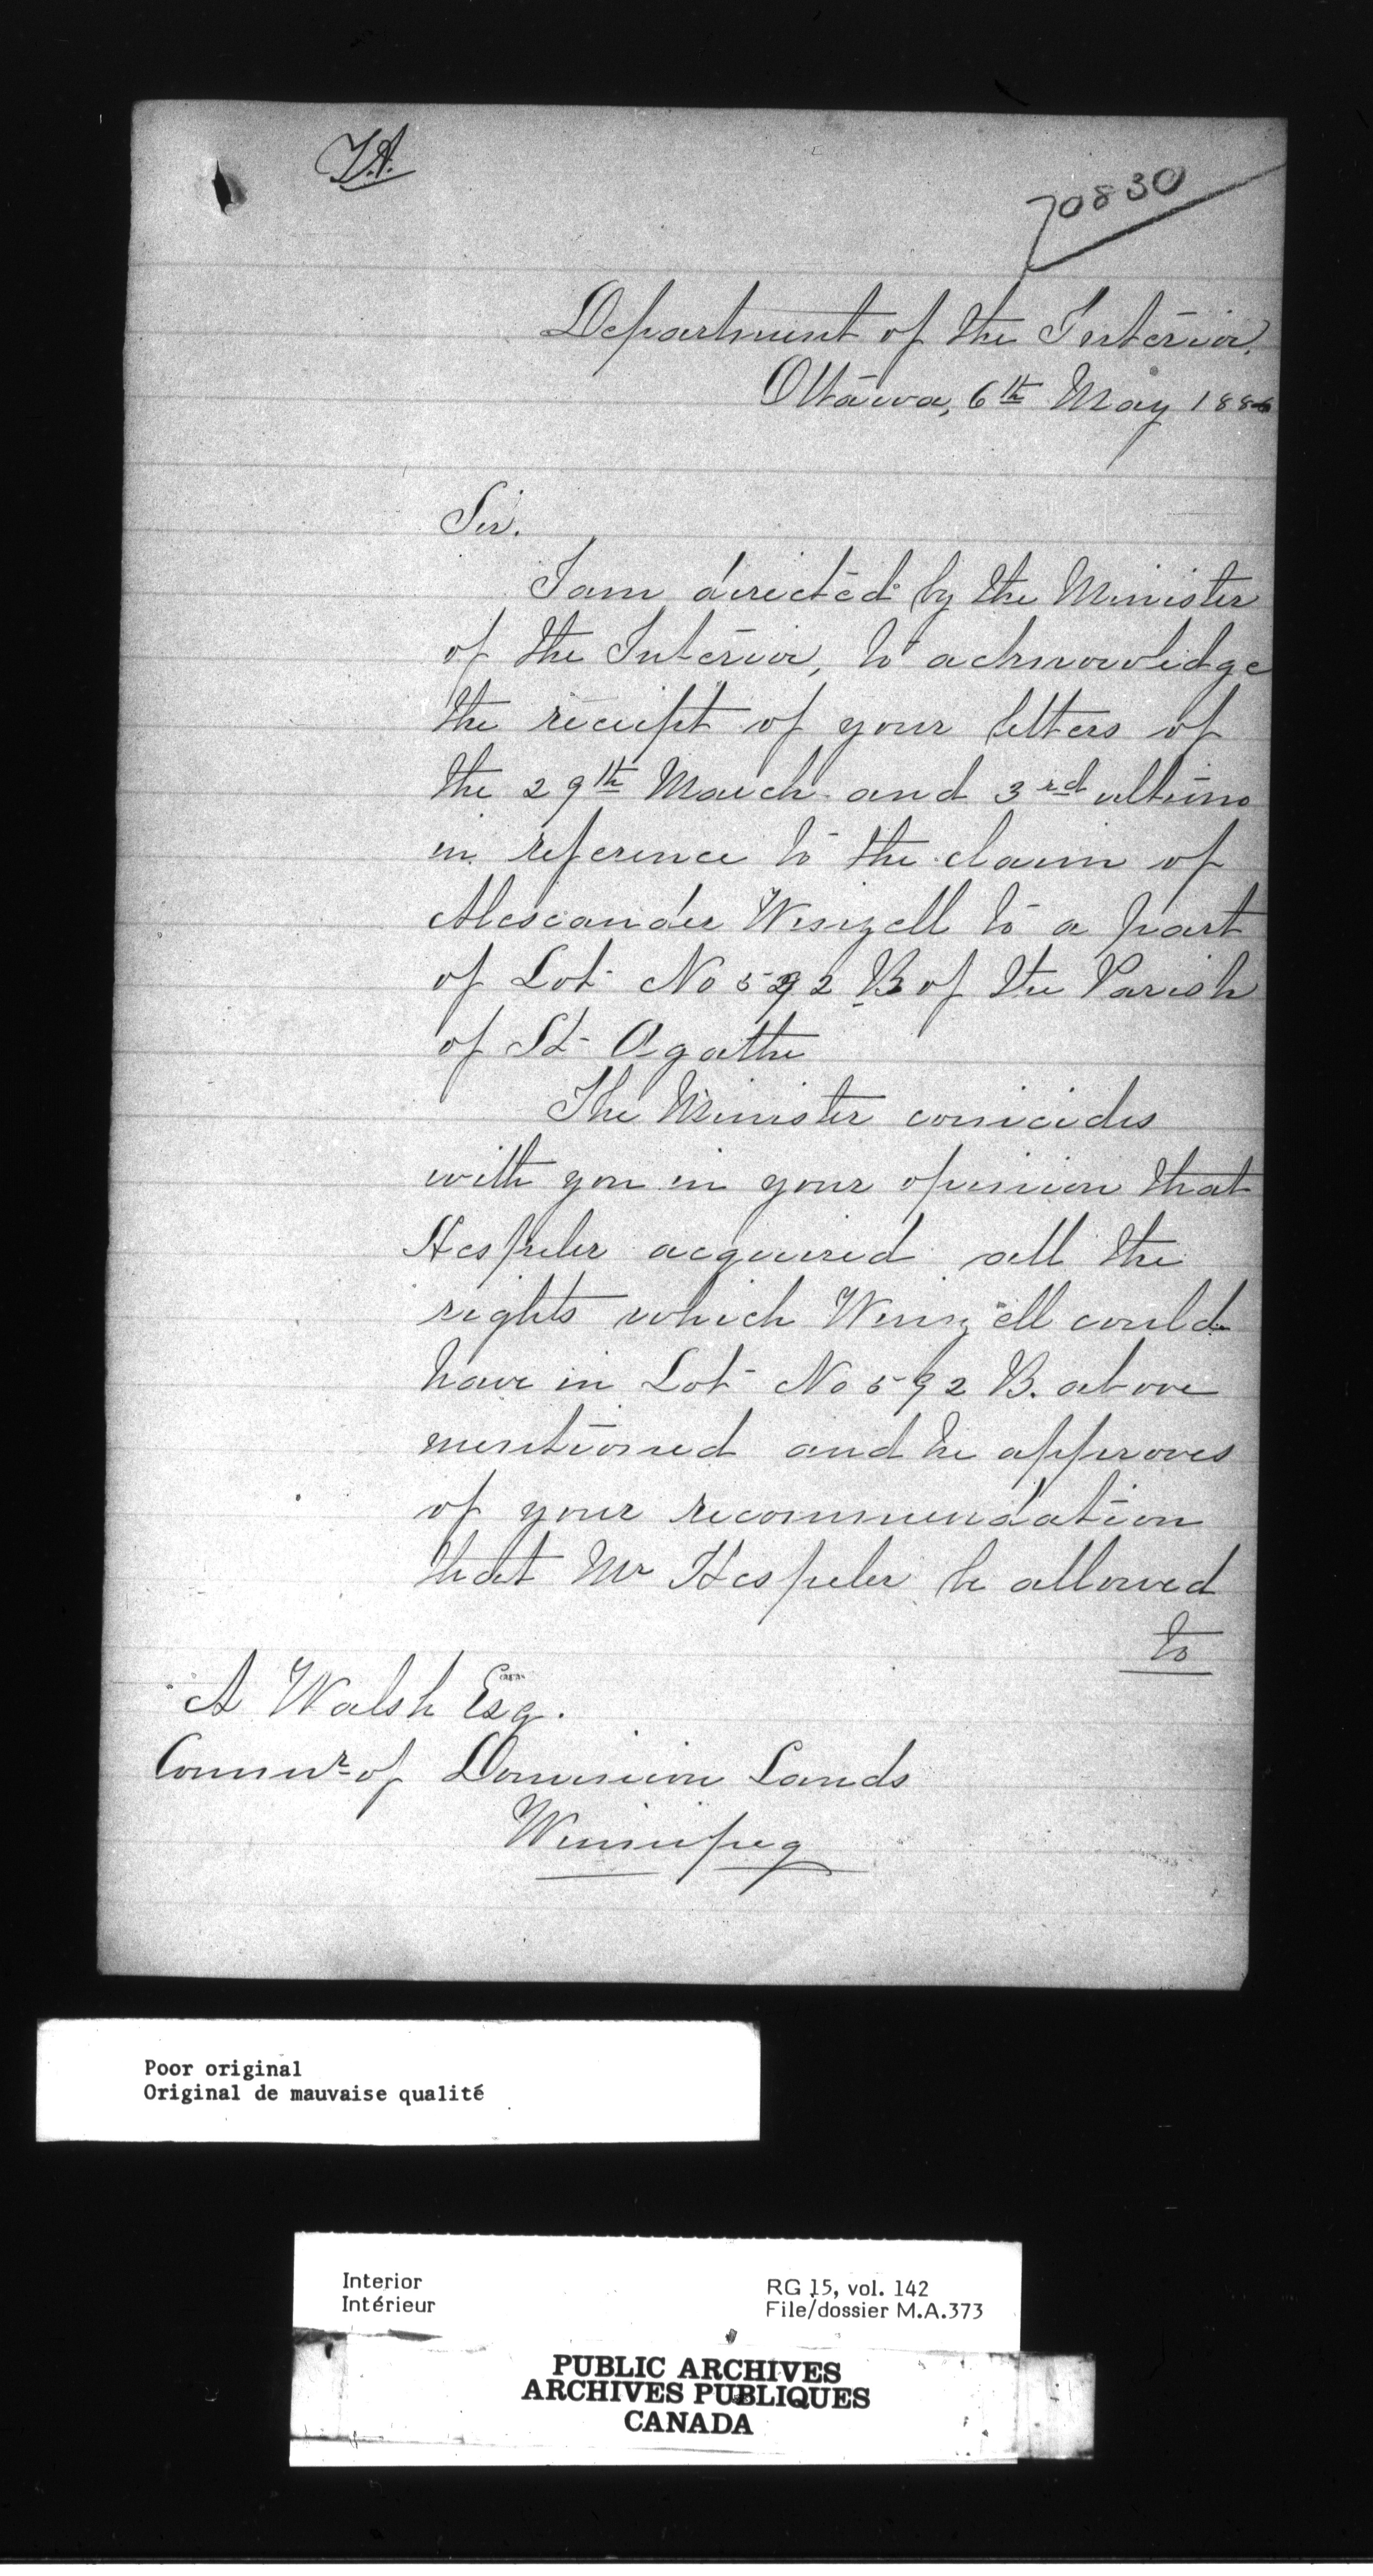 70830
Department of the Interior,
Ottawa, 6th May 1886
Sir.
I am directed by the Minister
of the Interior, to acknowledge
the receipt of your letters of
the 29th March and 3rd ultimo
in reference to the claim of
Alexander Winzell to a part
of Lot No 592 B of the Parish
of St Agathe
The Minister coincides
with you in your opinion that
Hespeler acquired all the
rights which Winzell could
have in Lot No 592 B. above
mentioned and he approves
of your recommendation
that Mr Hespeler be allowed
to
A Walsh Esq.
Commr of Dominion Lands
Winnipeg
Poor original
Original de mauvaise qualité
Interior
Intérieur
RG 15, vol. 142
File/dossier M.A.373
PUBLIC ARCHIVES
ARCHIVES PUBLIQUES
CANADA